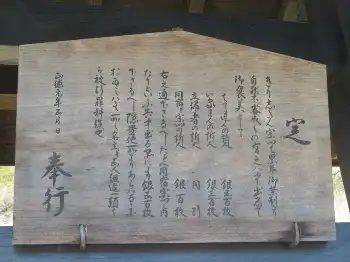 定
きりしたん宗門は累年御禁制たり
自然不審成ものこれ有は申出へし
御褒美として
はてれんの訴人 銀五百枚
いるまんの訴人 銀三百枚
立帰者の訴人 同断
同宿并宗門の訴人 銀百枚
右之通下さるへしたとひ同宿宗門之内
たりといふ共申出る品により銀五百枚
下さるへし隠置他所よりあらはるゝに
おゐてハ其所之名主并五人組迄一類共
可被行罪科者也
正徳元年五月日
奉行